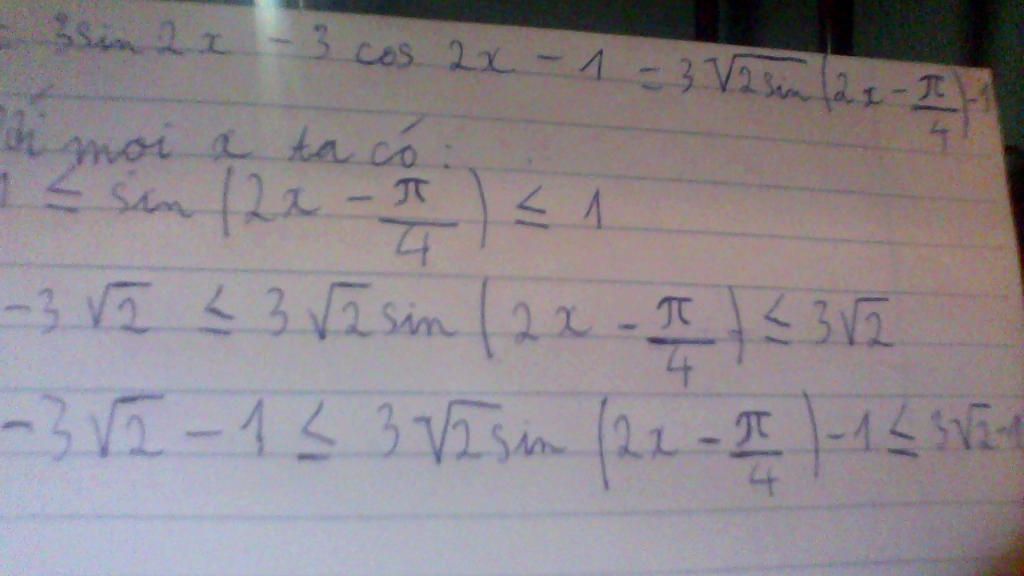 = 3sin 2x - 3 cos 2x - 1 = 3√2sin (2x - π/4) - 1
mọi x ta có:
1 ≤ sin (2x - π/4) ≤ 1
-3√2 ≤ 3√2 sin (2x - π/4) ≤ 3√2
-3√2 - 1 ≤ 3√2 sin (2x - π/4) - 1 ≤ 3√2-1